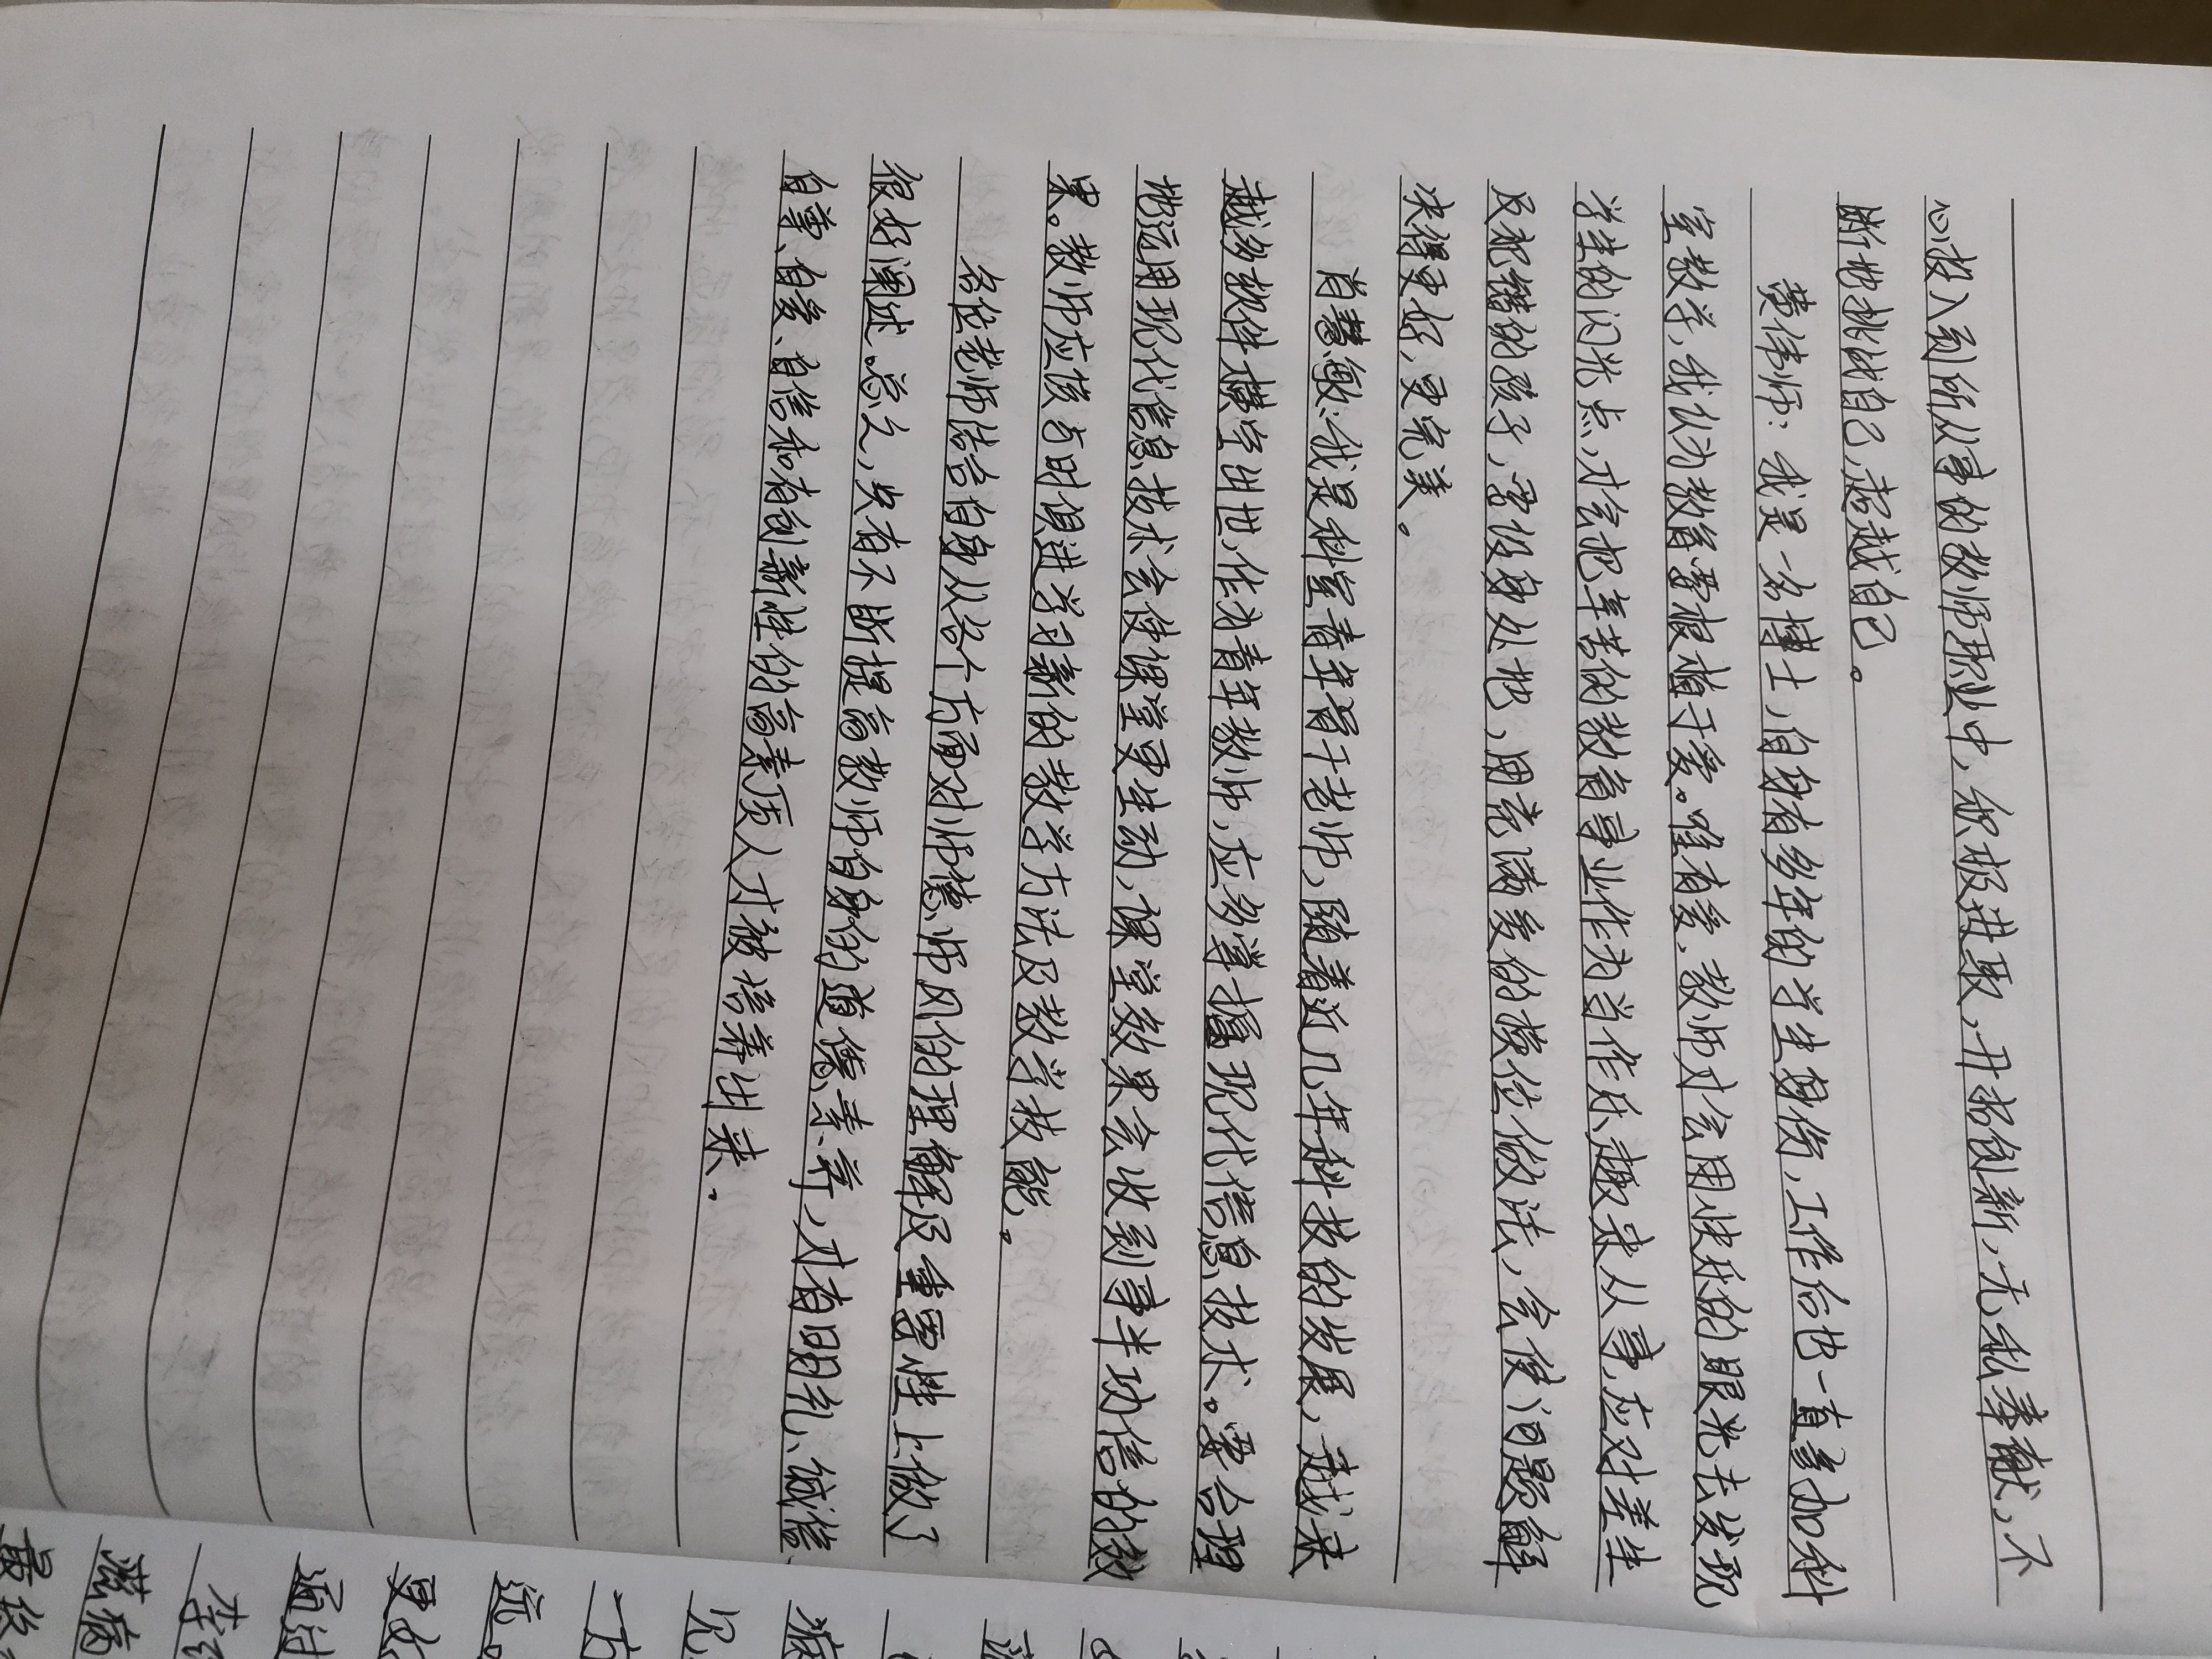 心投入到所从事的教师职业中，积极进取，开拓创新，无私奉献，不
断地挑战自己，超越自己。
樊伟师：我是一名博士，有着多年的学生身份，工作后也一直参加科
室教学，我认为教育需根植于爱。唯有爱，教师才会用快乐的眼光去发现
学生的闪光点，才会把辛苦的教育事业作为当作乐趣来从事，应对差生
及犯错的孩子，需设身处地，用充满爱的换位做法，会使问题解
决得更好，更完美。
肖慧敏：我是科室青年骨干老师，随着近几年科技的发展，越来
越多软件横空出世，作为青年教师，应多掌握现代信息技术。要合理
地运用现代信息技术会使课堂更生动，课堂效果会收到事半功倍的效
果。教师应该与时俱进学习新的教学方法及教学技能。
各位老师结合自身从各个方面对师德师风的理解及重要性上做了
很好阐述。总之，失有不断提高教师自身的道德素养，才有明礼、诚信、
自尊、自爱、自信和有创新性的高素质人才被培养出来。